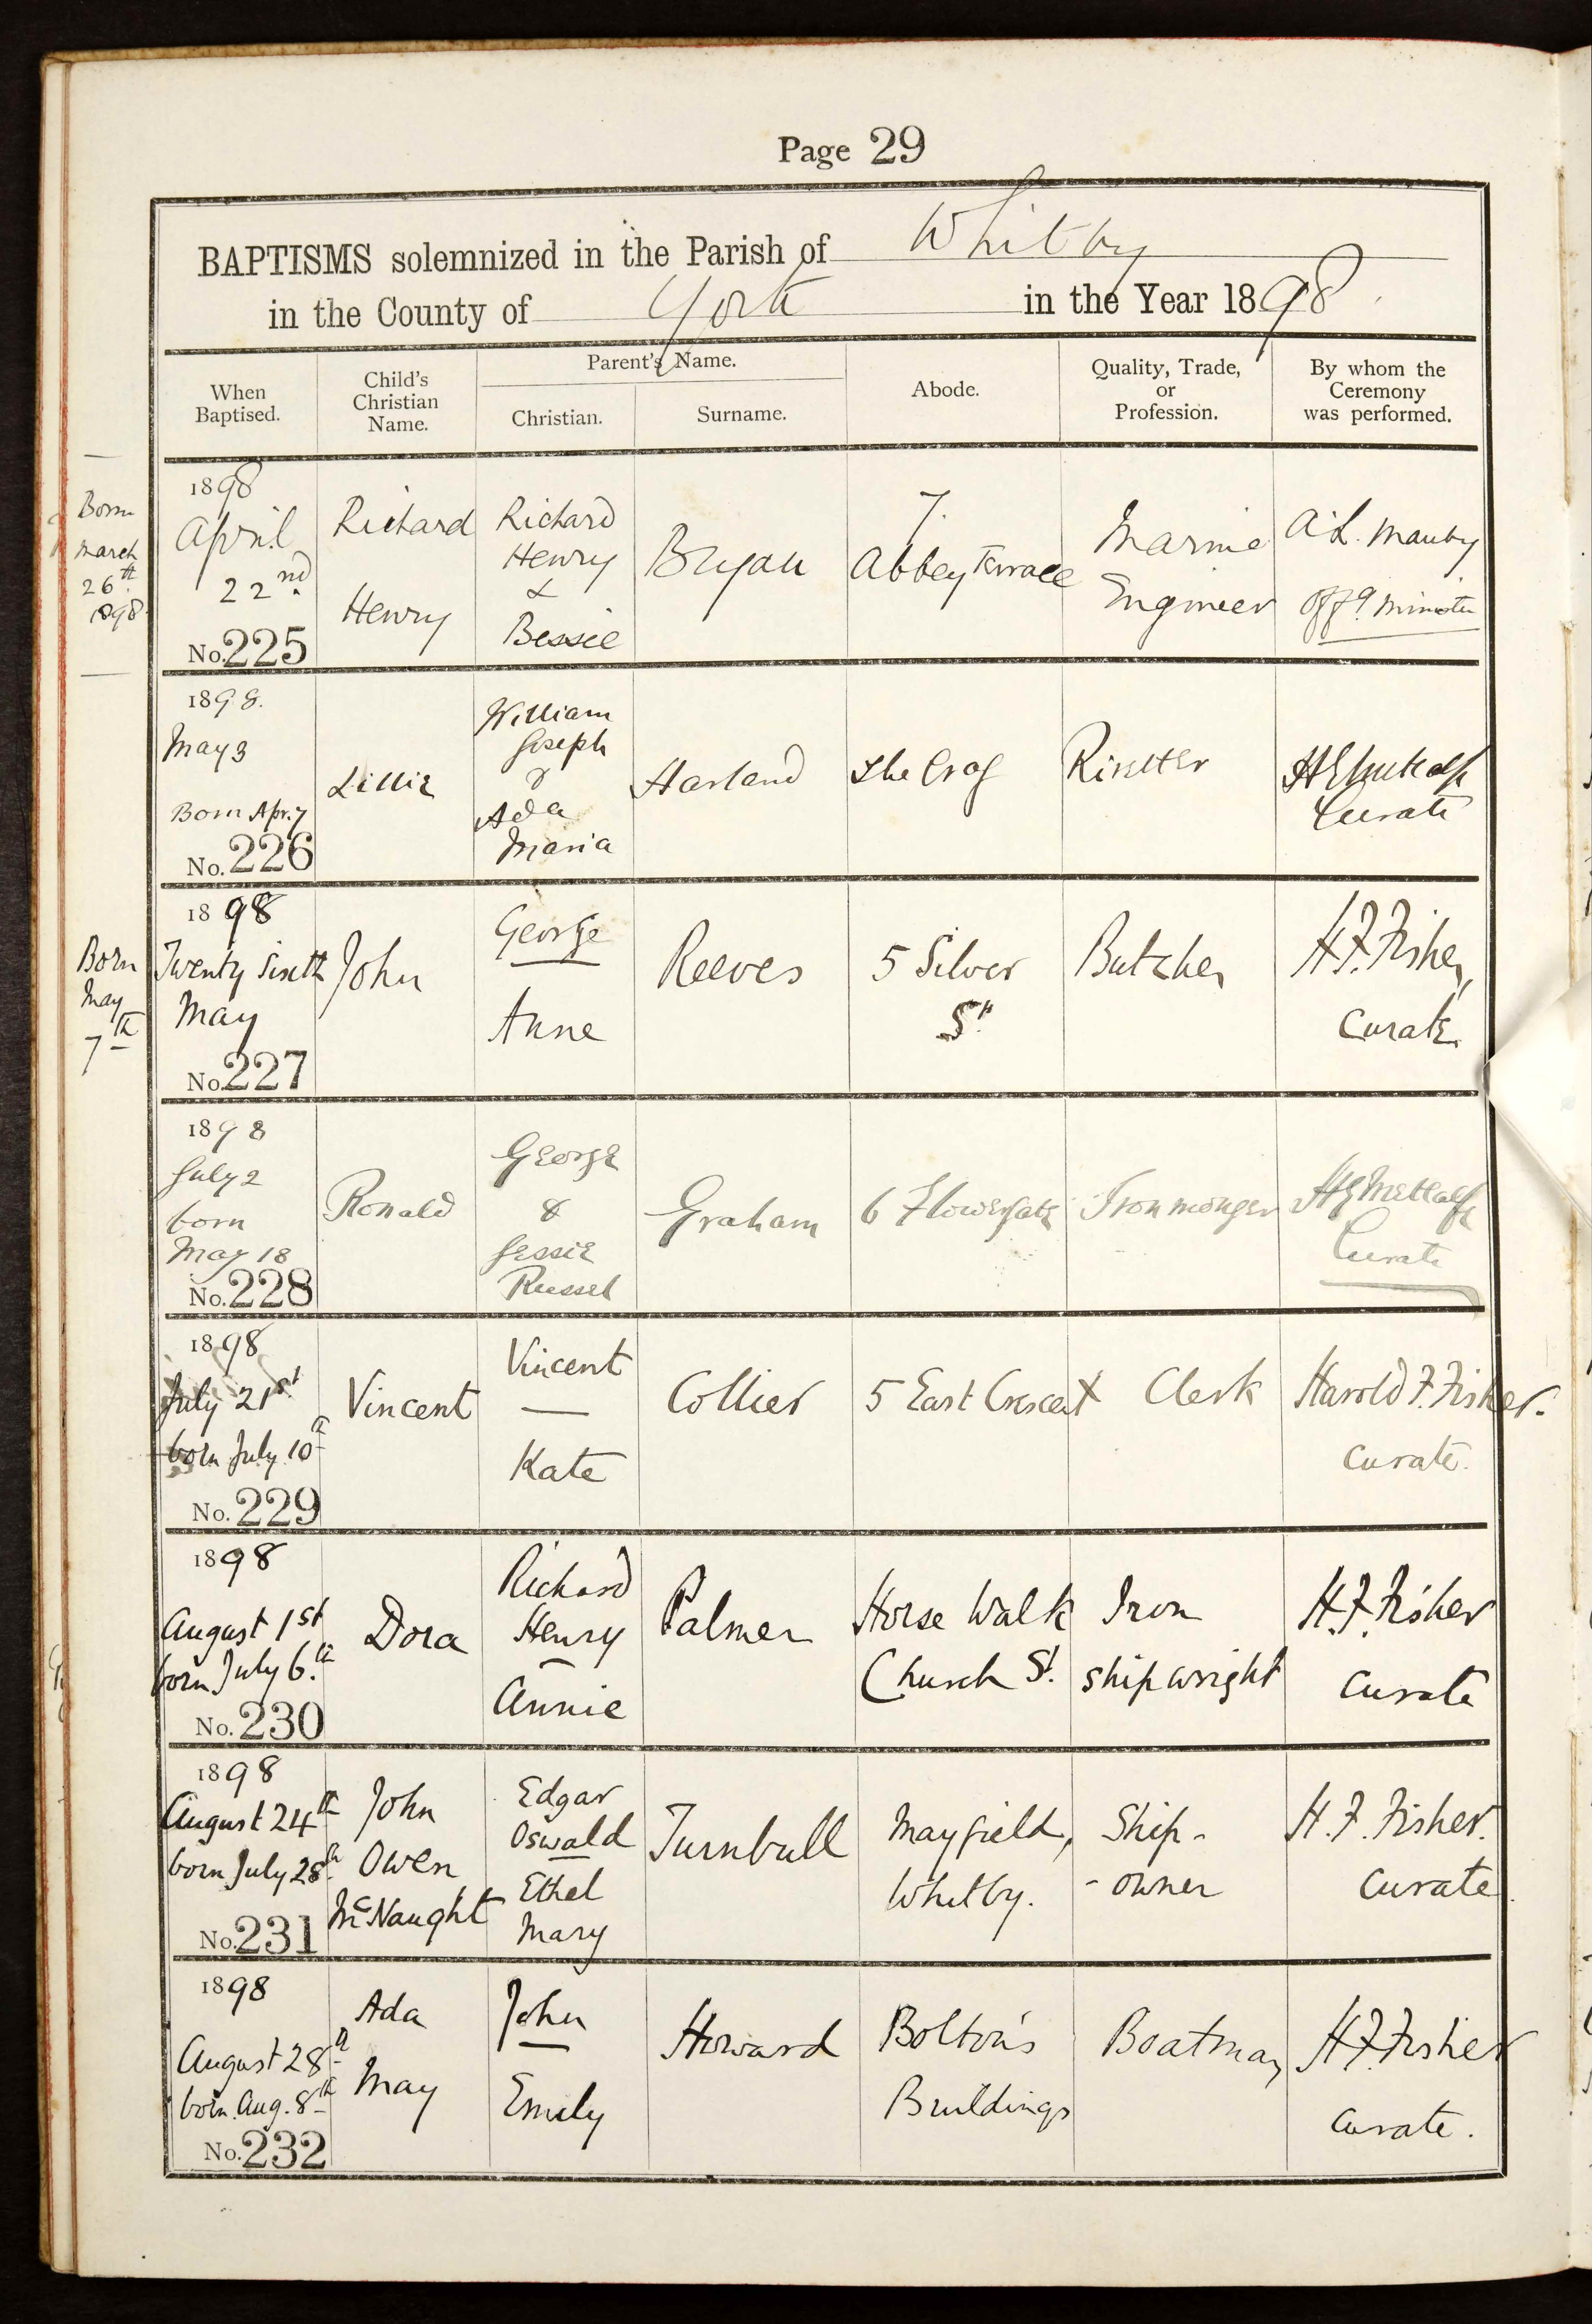 Page 29
BAPTISMS solemnized in the Parish of Whitby
in the County of York in the Year 1898.
When Baptised.
Child's Christian Name.
Parent's Name.
Christian.
Surname.
Abode.
Quality, Trade, or Profession.
By whom the Ceremony was performed.
Born
March
26th
1898
1898
April
22nd
No. 225
Richard
Henry
Richard
Henry
&
Bessie
Bryan
7.
Abbey Terrace
Marine
Engineer
Off. Minister
1898.
May 3
Born Apr. 7
No. 226
Lillie
William
Joseph
&
Ada
Maria
Harland
The Crag
Rivetter
H E Metcalfe
Curate
Born
May
7th
1898
Twenty Sixth
May
No. 227
John
George
Anne
Reeves
5 Silver
St
Butcher
H. F. Fisher,
Curate.
1898
July 2
born
May 18
No. 228
Ronald
George
&
Jessie
Russel
Graham
6 Flowergate
Ironmonger
H E Metcalfe
Curate
1898
July 21st
born July 10th
No. 229
Vincent
Vincent
—
Kate
Collier
5 East Crescent
Clerk
Harold F. Fisher.
Curate.
1898
August 1st
born July 6th
No. 230
Dora
Richard
Henry
—
Annie
Palmer
Horse Walk
Church St.
Iron
shipwright
H. F. Fisher
Curate
1898
August 24th
born July 28th
No. 231
John
Owen
McNaught
Edgar
Oswald
Ethel
Mary
Turnbull
Mayfield,
Whitby.
Ship-
-owner
H. F. Fisher.
Curate.
1898
August 28th
born Aug. 8th
No. 232
Ada
May
John
—
Emily
Howard
Bolton's
Buildings
Boatman
H. F. Fisher
Curate.